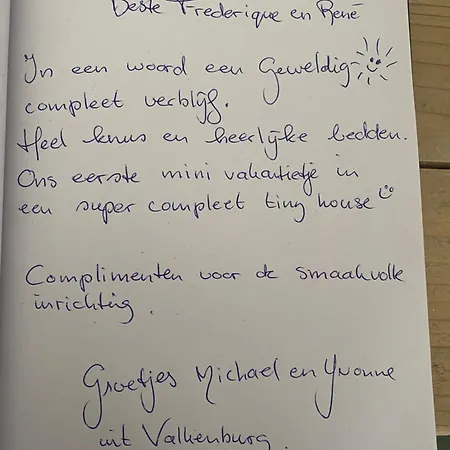 Beste Frederique en René
In een woord een Geweldig
compleet verblijf.
Heel knus en heerlijke bedden.
Ons eerste mini vakantietje in
een super compleet tiny house
Complimenten voor de smaakvolle
inrichting.
Groetjes Michael en Yvonne
uit Valkenburg.